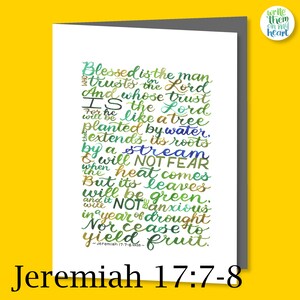 write
them
on my
heart
Blessed is the man
who trusts in the Lord
And whose trust
IS the Lord
For he
will be like a tree
planted by water.
That extends its roots
by a stream
& will NOT FEAR
when the heat comes
But its leaves
will be green.
and it will NOT be anxious
in a year of drought
Nor cease to
yield fruit.
Jeremiah 17:7-8